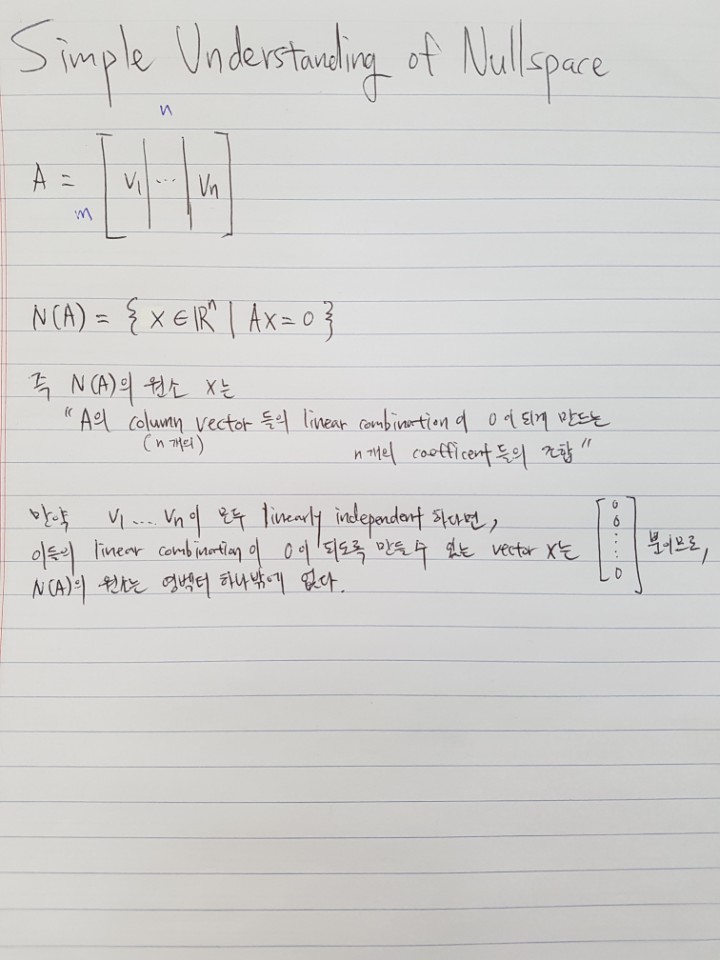 Simple Understanding of Nullspace
n
A = [ v₁ | ... | vₙ ]
m
N(A) = { x ∈ ℝⁿ | Ax = 0 }
즉 N(A)의 원소 x는
"A의 column vector 들의 linear combination이 0이 되게 만드는
(n개의) n개의 coefficent 들의 조합"
만약 v₁ .... vₙ이 모두 linearly independent 하다면,
이들의 linear combination이 0이 되도록 만들 수 있는 vector x는 [ 0 0 : : 0 ] 뿐이므로,
N(A)의 원소는 영벡터 하나밖에 없다.